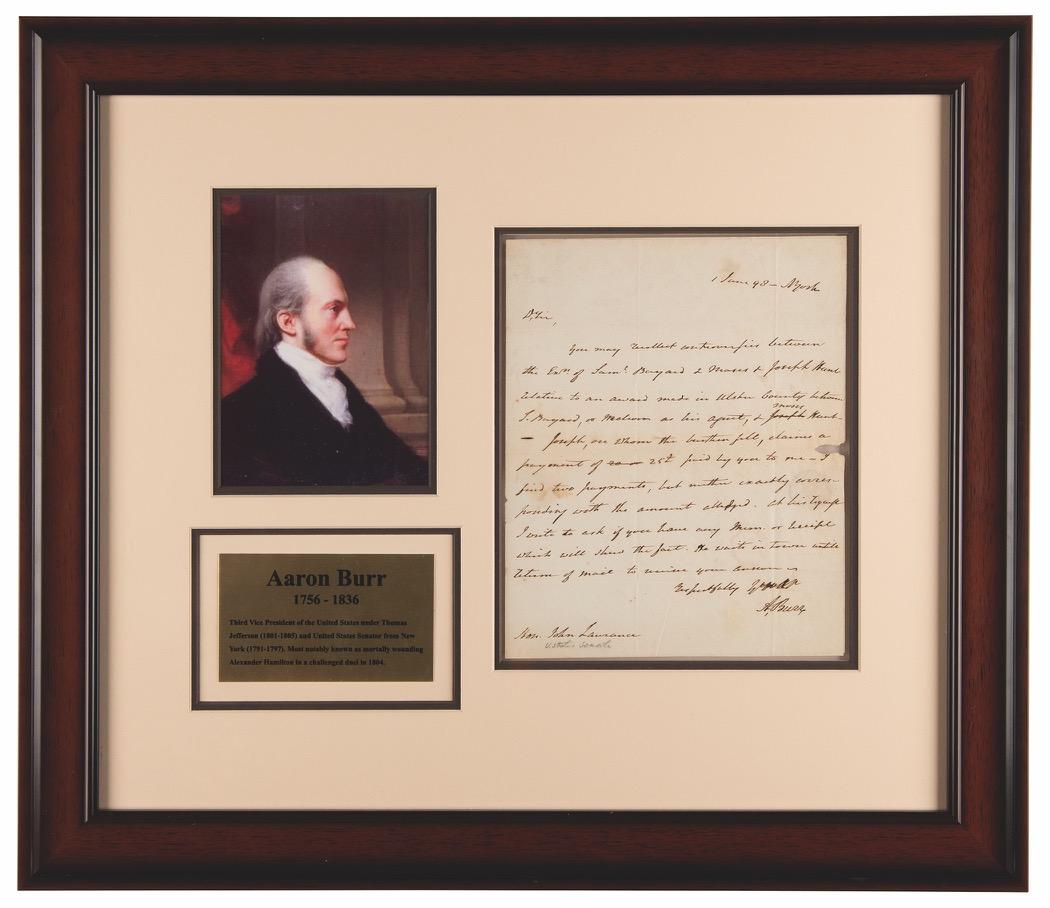 Aaron Burr
1756 - 1836
Third Vice President of the United States under Thomas
Jefferson (1801-1805) and United States Senator from New
York (1791-1797). Most notably known as mortally wounding
Alexander Hamilton in a challenged duel in 1804.
1 June 98 - NYork
D. Sir,
You may recollect controversies between
the Exrs of Saml. Bayard & Moses & Joseph Hunt
relative to an award made in Ulster County between
S. Bayard, or as his agent, & Joseph Hunt
Moses
- Joseph, on whom the burthen fell, claims a
payment of 25£ paid by you to me - I
find two payments, but neither exactly corres-
ponding with the amount alledged. At his request
I write to ask if you have any Mem. or receipt
which will shew the fact. He waits in town until
return of mail to receive your answer
respectfully
A. Burr
Hon. John Laurance
U States Senate